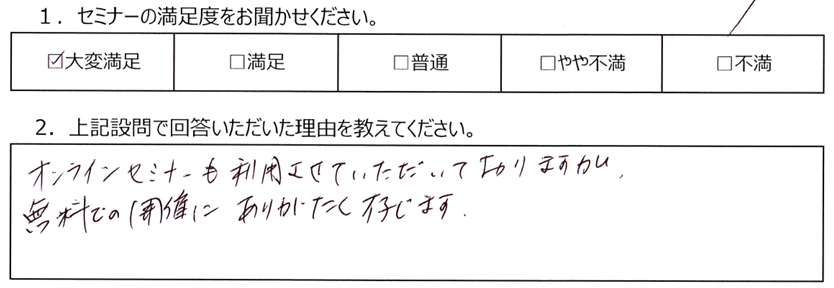 1．セミナーの満足度をお聞かせください。
☑大変満足 □満足 □普通 □やや不満 □不満
2．上記設問で回答いただいた理由を教えてください。
オンラインセミナーも利用させていただいておりますが、
無料での開催にありがたく存じます。